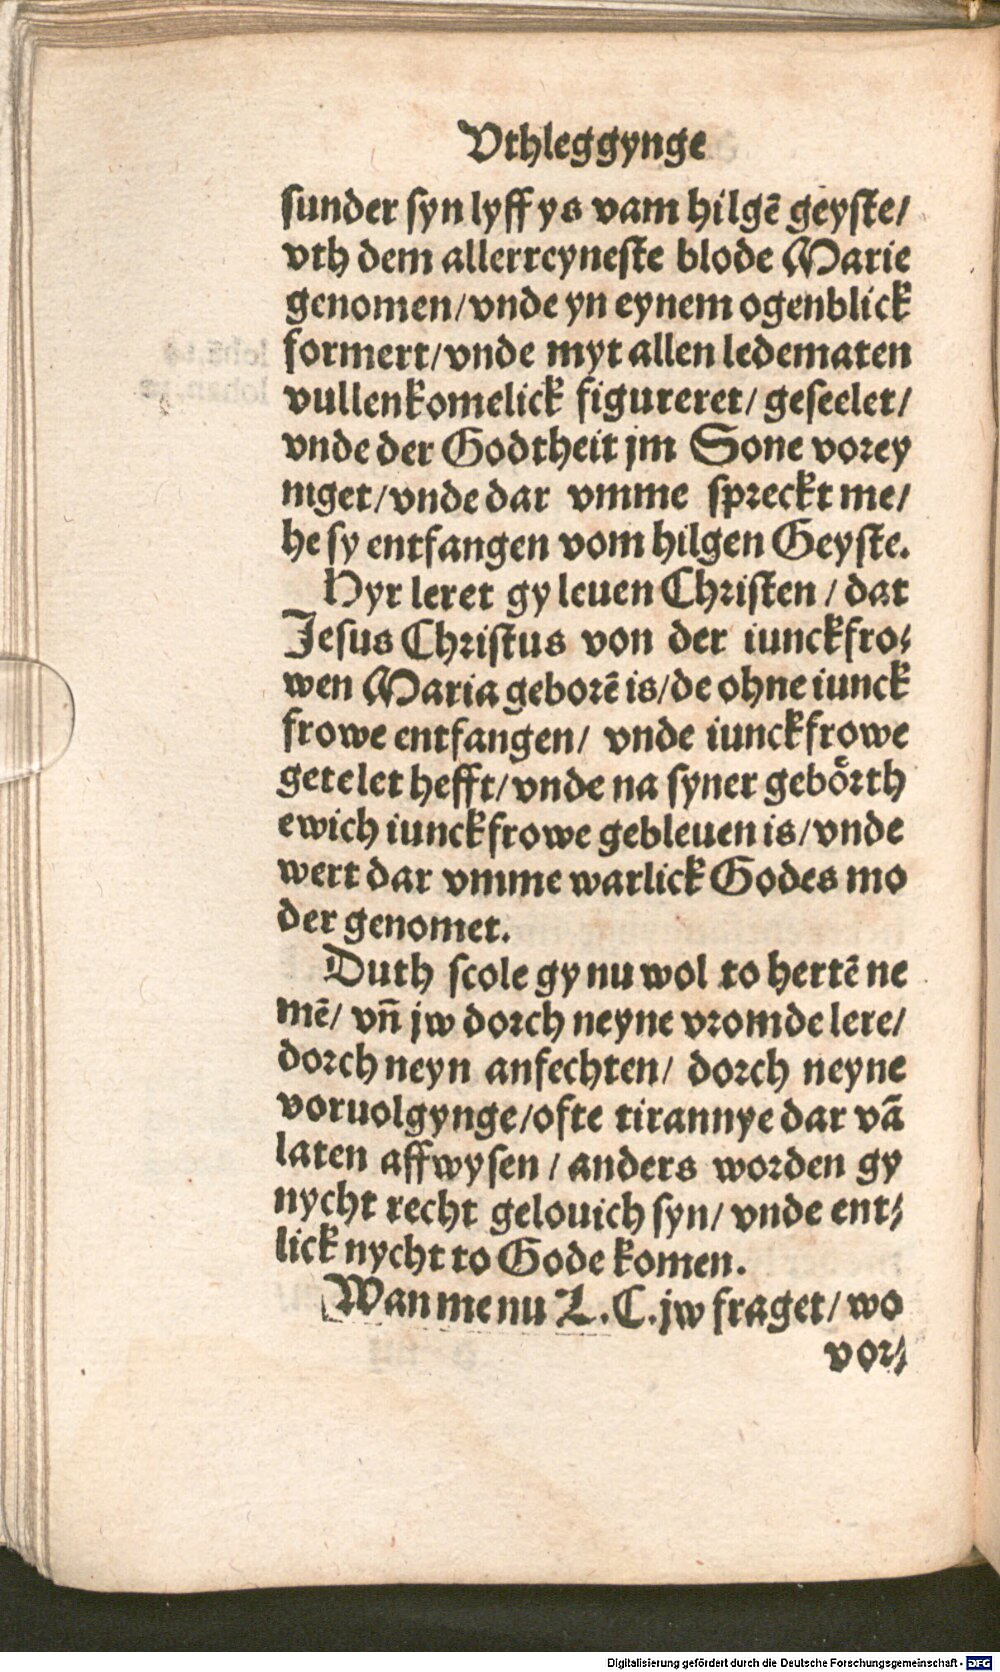 Vthleggynge
sunder syn lyff ys vam hilgē geyste/
vth dem allerreyneste blode Marie
genomen/vnde yn eynem ogenblick
formert/vnde myt allen ledematen
vullenkomelick figureret/geseelet/
vnde der Godtheit jm Sone vorey
niget/vnde dar vmme spreckt me/
he sy entfangen vom hilgen Geyste.
Hyr leret gy leuen Christen/dat
Jesus Christus von der iunckfro-
wen Maria geborē is/de ohne iunck
frowe entfangen/ vnde iunckfrowe
getelet hefft/vnde na syner geboͤrth
ewich iunckfrowe gebleuen is/vnde
wert dar vmme warlick Godes mo
der genomet.
Duth scole gy nu wol to hertē ne
mē/ vñ jw dorch neyne vromde lere/
dorch neyn anfechten/ dorch neyne
voruolgynge/ofte tirannye dar vā
laten affwysen/anders worden gy
nycht recht gelouich syn/ vnde ent-
lick nycht to Gode komen.
Wan me nu L.C.jw fraget/wo
vor-
Digitalisierung gefördert durch die Deutsche Forschungsgemeinschaft - DFG